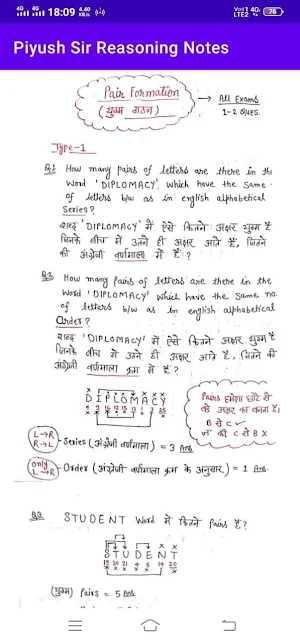 4G 4G 18:09 4.40 KB/s
Vo)) 1 4G LTE2 76
Piyush Sir Reasoning Notes
Pair Formation
(युग्म गठन)
→ All Exams
1-2 Ques.
Type-1
Q.1 How many pairs of letters are there in the
word 'DIPLOMACY' which have the same
of letters b/w as in english alphabetical
Series?
शब्द 'DIPLOMACY' में ऐसे कितने अक्षर युग्म हैं
जिनके बीच में उतने ही अक्षर आते हैं, जितने
की अंग्रेजी वर्णमाला में हैं?
Q.2 How many pairs of letters are there in the
word 'DIPLOMACY' which have the same no.
of letters b/w as in english alphabetical
Order?
शब्द 'DIPLOMACY' में ऐसे कितने अक्षर युग्म हैं
जिनके बीच में उतने ही अक्षर आते हैं, जितने की
अंग्रेजी वर्णमाला क्रम में हैं?
D I P L O M A C Y
4 9 16 12 15 13 1 3 25
Pairs हमेशा छोटे से
बड़े अक्षर का बनता है।
B से C ✓
न की C से B X
L→R
R→L
Series (अंग्रेजी वर्णमाला) = 3 Ans.
only
L→R
Order (अंग्रेजी वर्णमाला क्रम के अनुसार) = 1 Ans.
Q.3 STUDENT Word में कितने Pairs हैं?
S T U D E N T
19 20 21 4 5 14 20
(युग्म) Pairs = 5 Ans.